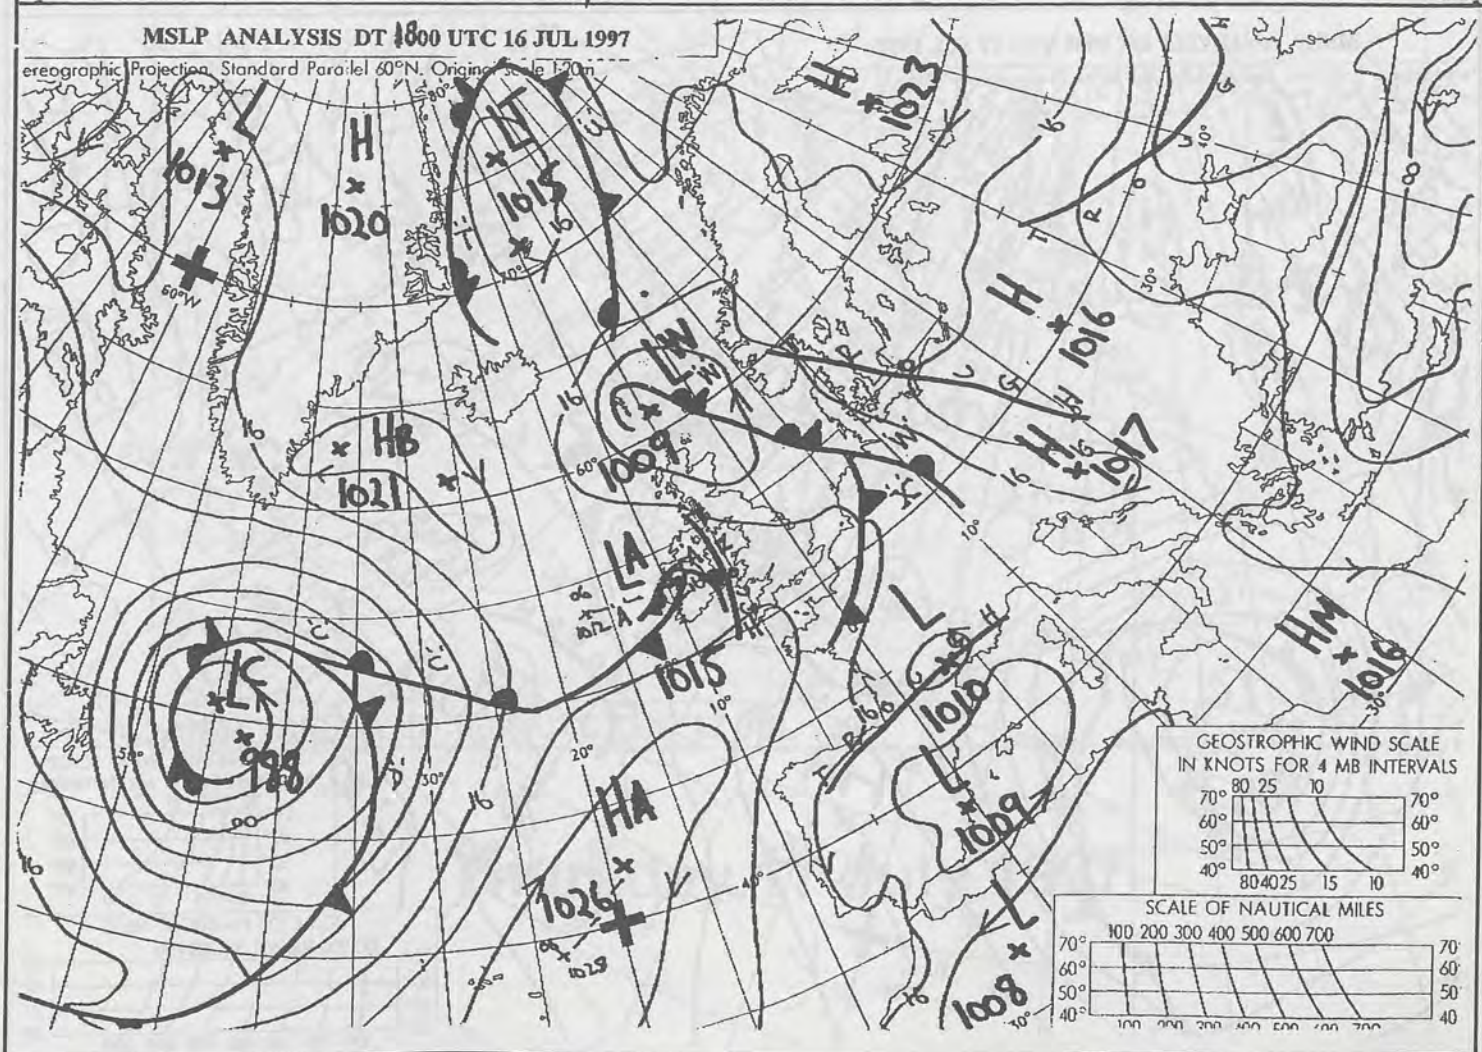 MSLP ANALYSIS DT 1800 UTC 16 JUL 1997
ereographic Projection, Standard Parallel 60°N. Original scale 1:20m
H
1023
L
1013
H
1020
80°
LT
1015
16
70°
60°W
16
40°
TROUGH
30°
H
1016
LW
1009
16
60°
TROUGH
H
1017
16
HB
1021
16
10°
LA
1012
1015
L
1010
16
TROUGH
HM
1016
30°
LC
988
50°
30°
20°
10°
16
16
HA
1026
1028
40°
L
1009
L
1008
30°
16
8
GEOSTROPHIC WIND SCALE
IN KNOTS FOR 4 MB INTERVALS
80 25 10
70° 70°
60° 60°
50° 50°
40° 40°
80 40 25 15 10
SCALE OF NAUTICAL MILES
100 200 300 400 500 600 700
70° 70
60° 60
50° 50
40° 40
100 200 300 400 500 600 700